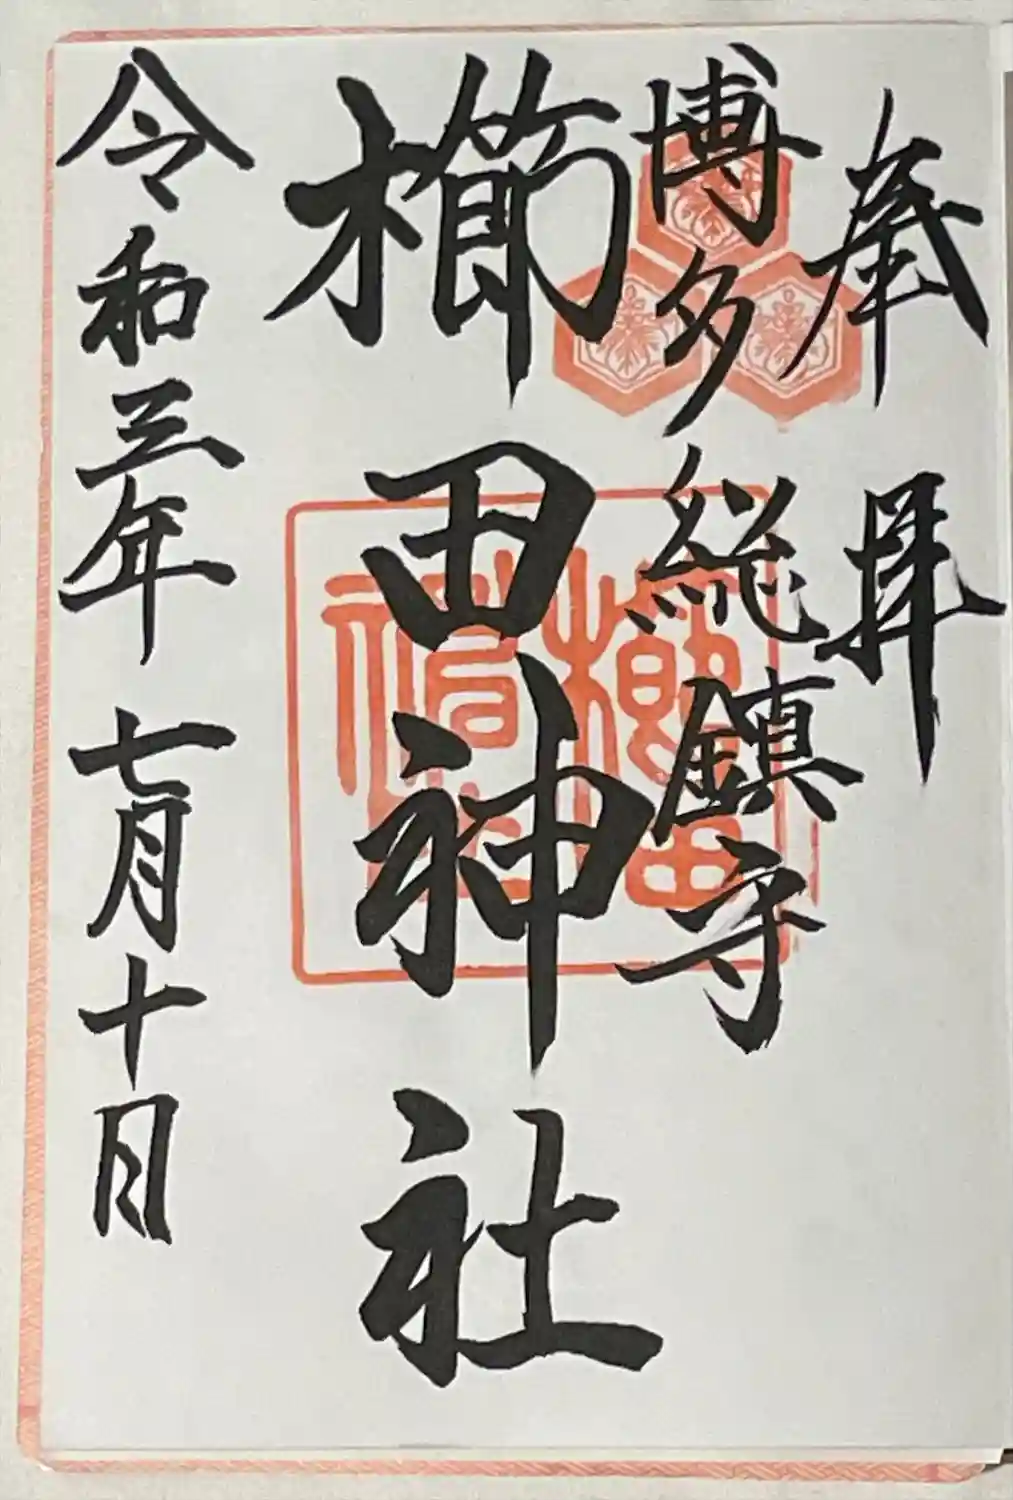 奉拝
博多総鎮守
櫛田神社
櫛田
神社
令和三年七月十日